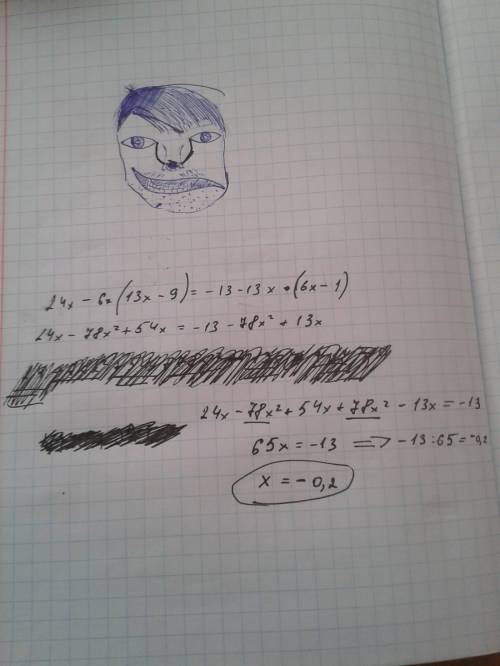 24x - 6x(13x - 9) = -13 - 13x · (6x - 1)
24x - 78x² + 54x = -13 - 78x² + 13x
24x - 78x² + 54x + 78x² - 13x = -13
65x = -13 => -13 : 65 = -0,2
x = -0,2